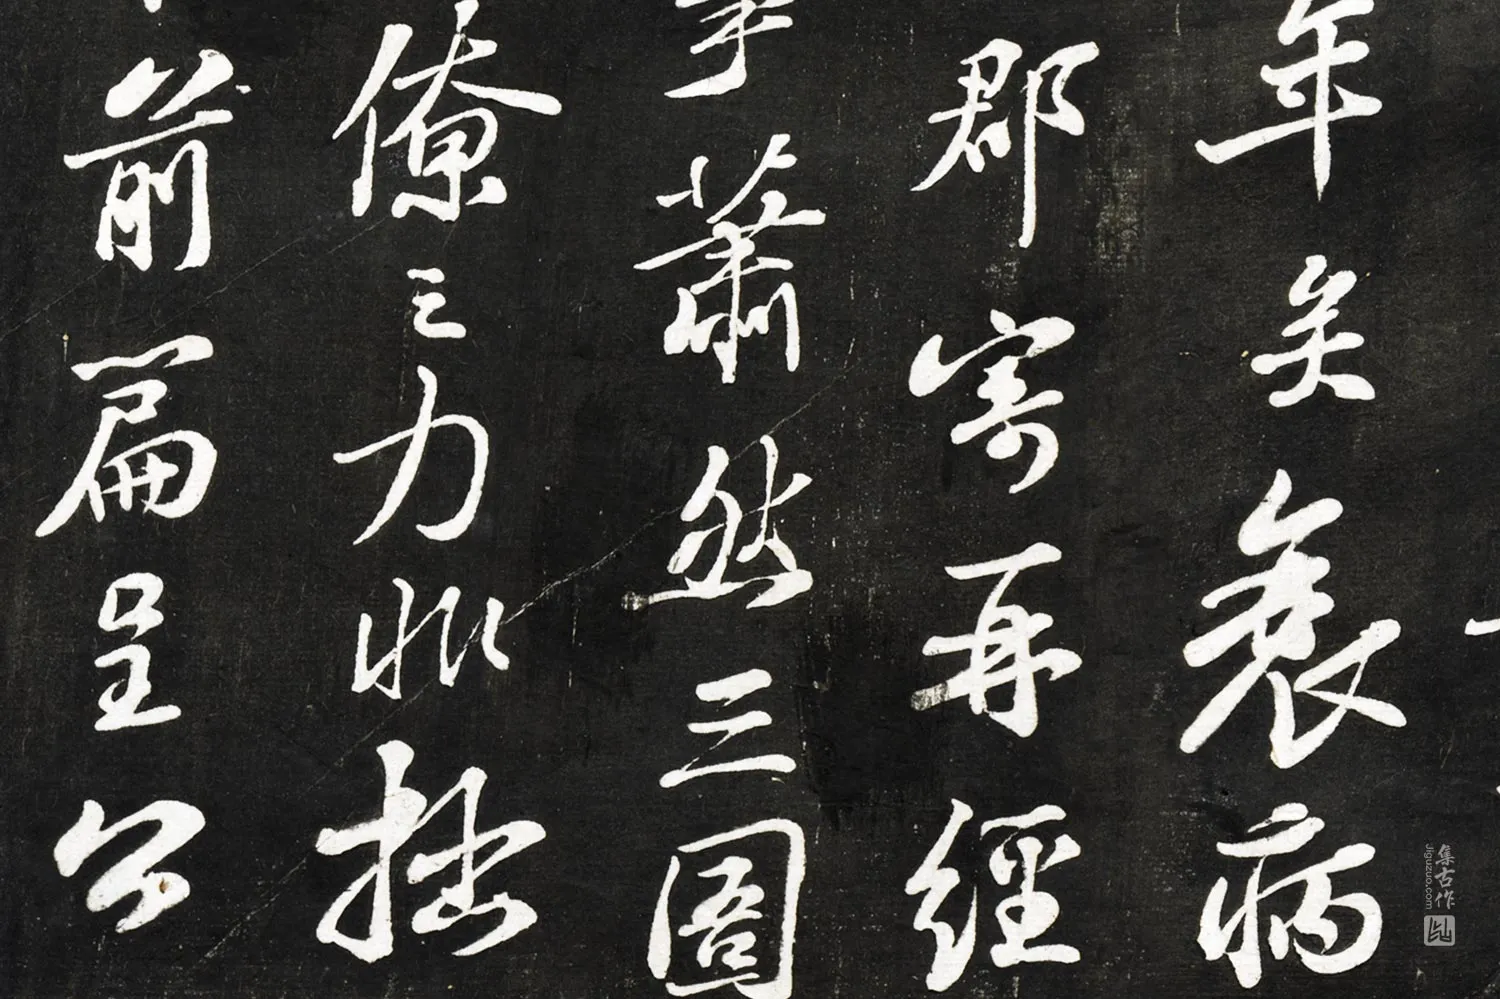 年矣衰病
郡寄再經
蕭然三圄
僚之力非拙
前篇呈公
集古作
jiguzuo.com